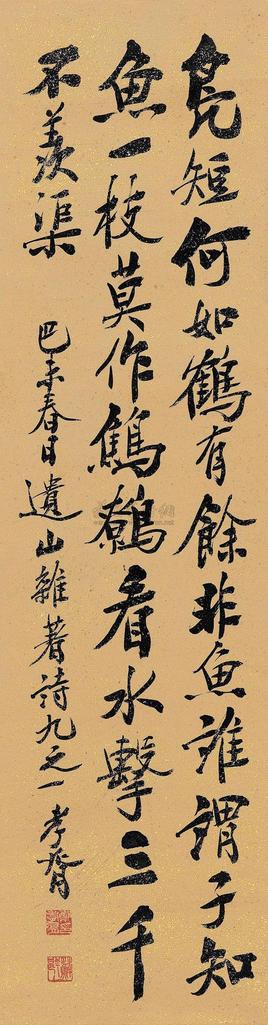 凫短何如鶴有餘非魚誰謂子知
魚一枝莫作鷦鷯看水擊三千
不羨渠
己未春日遺山雜著詩九之一 孝胥